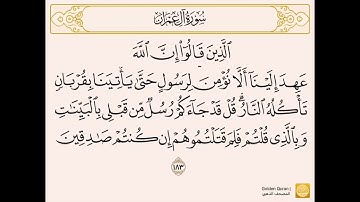 سُورَةُ آلِ عِمْرَانَ
الَّذِينَ قَالُوا إِنَّ اللَّهَ
عَهِدَ إِلَيْنَا أَلَّا نُؤْمِنَ لِرَسُولٍ حَتَّىٰ يَأْتِيَنَا بِقُرْبَانٍ
تَأْكُلُهُ النَّارُ ۗ قُلْ قَدْ جَاءَكُمْ رُسُلٌ مِّن قَبْلِي بِالْبَيِّنَاتِ
وَبِالَّذِي قُلْتُمْ فَلِمَ قَتَلْتُمُوهُمْ إِن كُنتُمْ صَادِقِينَ
١٨٣
Golden Quran |
المصحف الذهبي